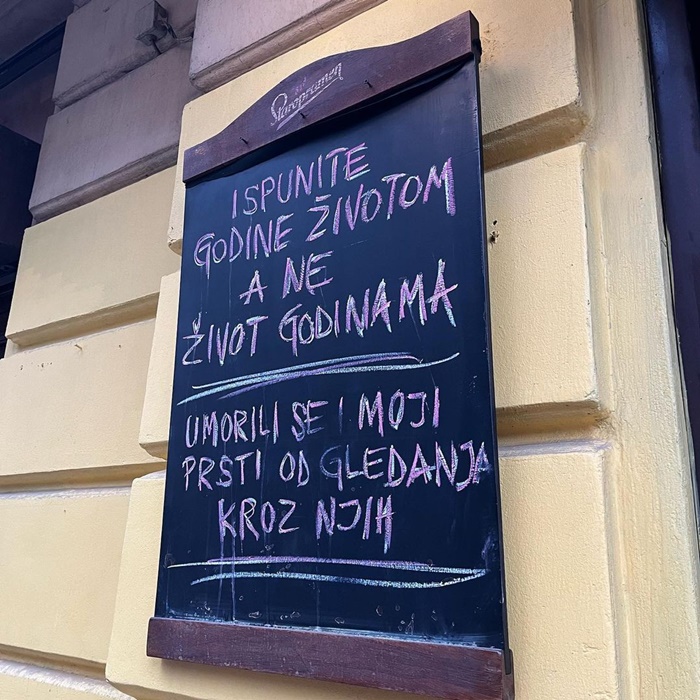 Staropramen
ISPUNITE
GODINE ŽIVOTOM
A NE
ŽIVOT GODINAMA
UMORILI SE I MOJI
PRSTI OD GLEDANJA
KROZ NJIH